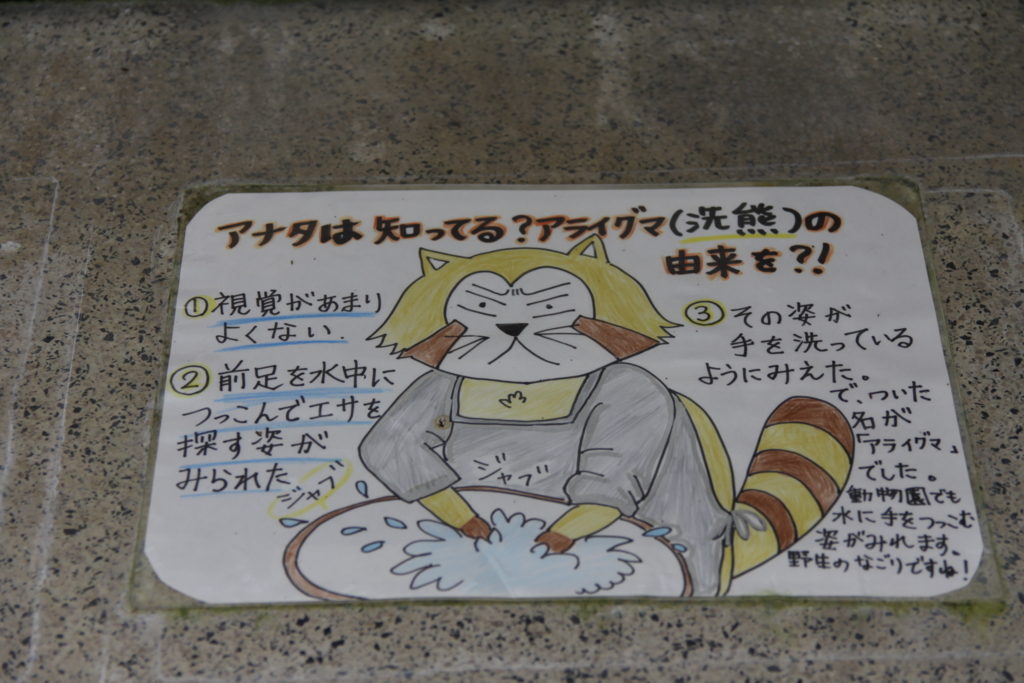 アナタは知ってる？アライグマ(洗熊)の
由来を？！
①視覚があまり
よくない．
②前足を水中に
つっこんでエサを
探す姿が
みられた
ジャブ
ジャブ
③その姿が
手を洗っている
ようにみえた。
で、ついた
名が
「アライグマ」
でした。
動物園でも
水に手をつっこむ
姿がみれます、
野生のなごりですね！